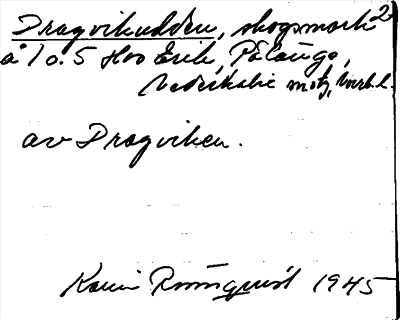 Dragvikudden, skogsmark 2
å 1 o. 5 Hos Erik, Pålänge,
Nederkalix
av Dragviken.
Karin Rönnquist 1945